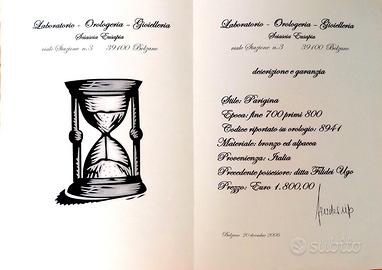 Laboratorio - Orologeria - Gioielleria
viale Stazione n.3 39100 Bolzano
Laboratorio - Orologeria - Gioielleria
viale Stazione n.3 39100 Bolzano
descrizione e garanzia
Stile: Parigina
Epoca: fine 700 primi 800
Codice riportato su orologio: 8941
Materiale: bronzo ed alpacca
Provenienza: Italia
Precedente possessore: ditta Filidei Ugo
Prezzo: Euro 1.800,00
Bolzano 20 dicembre 2006
subito